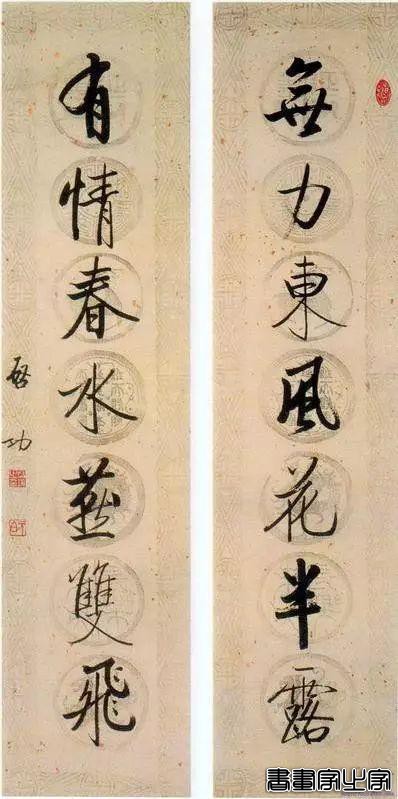 無力東風花半露
有情春水燕雙飛
啓功
書畫字之家